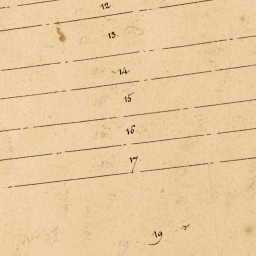 12
13
14
15
16
17
19